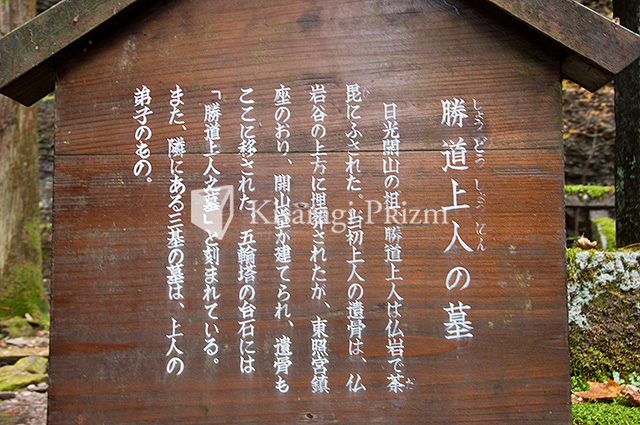 勝道上人の墓
しょうどうしょうにん
日光開山の祖、勝道上人は仏岩で荼
毘にふされた。当初上人の遺骨は、仏
岩谷の上方に埋葬されたが、東照宮鎮
座のおり、開山堂が建てられ、遺骨も
ここに移された。五輪塔の台石には
「勝道上人之墓」と刻まれている。
また、隣にある三基の墓は、上人の
弟子のもの。
だ
び
Khangi Prizm